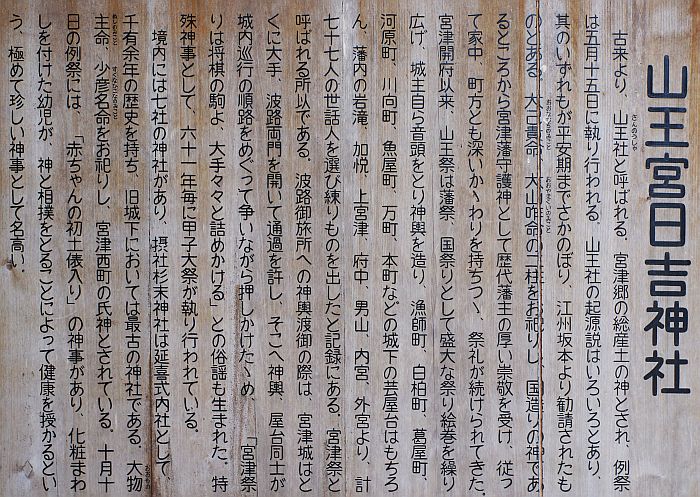 山王宮日吉神社
古来より、山王社と呼ばれる。宮津郷の総産土の神とされ、例祭
さんのうしゃ
は五月十五日に執り行われる。山王社の起源説はいろいろとあり、
其のいずれもが平安期までさかのぼり、江州坂本より勧請されたも
のとある。大己貴命、大山咋命の二柱をお祀りし、国造りの神であ
おおなむちのみこと おおやまくいのみこと
るところから宮津藩守護神として歴代藩主の厚い崇敬を受け、従っ
て家中、町方とも深いかゝわりを持ちつゝ、祭礼が続けられてきた。
宮津開府以来、山王祭は藩祭、国祭りとして盛大な祭り絵巻を繰り
広げ、城主自ら音頭をとり神輿を造り、漁師町、白柏町、葛屋町、
河原町、川向町、魚屋町、万町、本町などの城下の芸屋台はもちろ
ん、藩内の岩滝、加悦、上宮津、府中、男山、内宮、外宮より、計
七十七人の世話人を選び練りものを出したと記録にある。宮津祭と
呼ばれる所以である。波路御旅所への神輿渡御の際は、宮津城はと
くに大手、波路両門を開いて通過を許し、そこへ神輿、屋台同士が
城内巡行の順路をめぐって争いながら押しかけたゝめ、「宮津祭
りは将棋の駒よ、大手々々と詰めかける」との俗謡も生まれた。特
殊神事として、六十一年毎に甲子大祭が執り行われている。
境内には七社の神社があり、摂社杉末神社は延喜式内社として、
千有余年の歴史を持ち、旧城下においては最古の神社である。大物
おおもの
主命、少彦名命をお祀りし、宮津西町の氏神とされている。十月十
ぬしのみこと すくなひこなのみこと
日の例祭には、「赤ちゃんの初土俵入り」の神事があり、化粧まわ
しを付けた幼児が、神と相撲をとることによって健康を授かるとい
う、極めて珍しい神事として名高い。